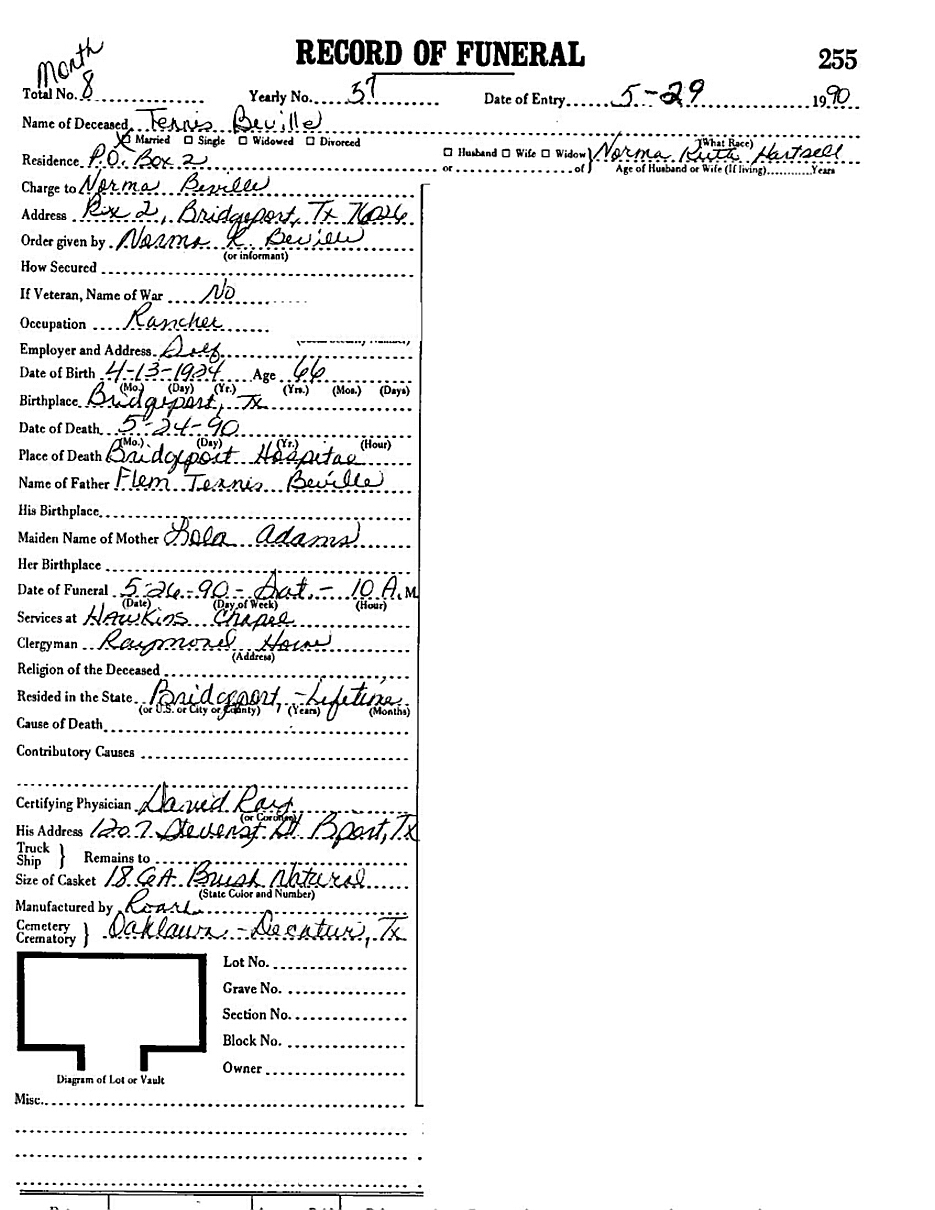 RECORD OF FUNERAL 255
Month
Total No. 8 Yearly No. 37 Date of Entry 5-29 1990
Name of Deceased Tennis Beville
Married Single Widowed Divorced (What Race)
Residence P.O. Box 2 Husband Wife Widow or of Norma Ruth Hartsell
Age of Husband or Wife (If living) Years
Charge to Norma Beville
Address Box 2, Bridgeport, Tx 76026
Order given by Norma R. Beville
(or informant)
How Secured
If Veteran, Name of War No
Occupation Rancher
Employer and Address Self
Date of Birth 4-13-1924 Age 66
(Mo.) (Day) (Yr.) (Yrs.) (Mos.) (Days)
Birthplace Bridgeport, Tx
Date of Death 5-24-90
(Mo.) (Day) (Yr.) (Hour)
Place of Death Bridgeport Hospital
Name of Father Flem Tennis Beville
His Birthplace
Maiden Name of Mother Lola Adams
Her Birthplace
Date of Funeral 5-26-90 - Sat. - 10 A.M.
(Date) (Day of Week) (Hour)
Services at Hawkins Chapel
Clergyman Raymond
(Address)
Religion of the Deceased
Resided in the State Bridgeport, - Lifetime
(or U.S. or City or County) (Years) (Months)
Cause of Death
Contributory Causes
Certifying Physician David Ray
(or Coroner)
His Address 1207 Stevens St Bport, Tx
Truck
Ship } Remains to
Size of Casket 18 GA Brush Natural
(State Color and Number)
Manufactured by
Cemetery
Crematory } Oaklawn - Decatur, Tx
Lot No.
Grave No.
Section No.
Block No.
Owner
Diagram of Lot or Vault
Misc.